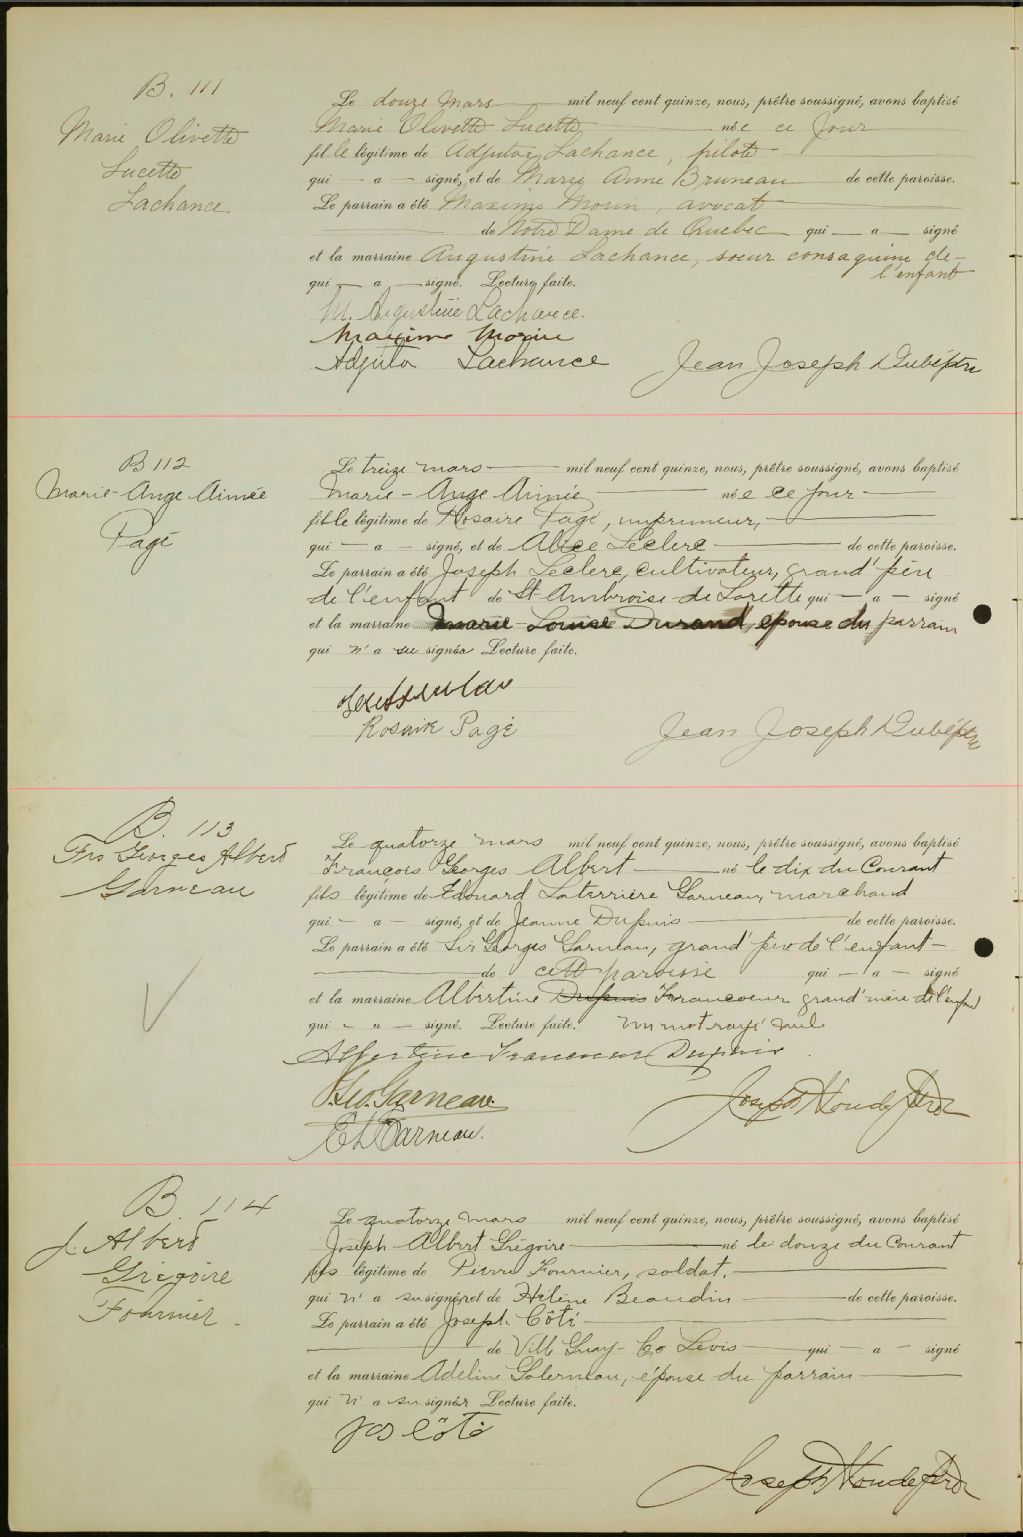 B. 111
Marie Olivette
Lucette
Lachance
Le douze mars mil neuf cent quinze, nous, prêtre soussigné, avons baptisé
Marie Olivette Lucette née ce jour
fille légitime de Adjutor Lachance, pilote
qui — a — signé, et de Marie Anne Bruneau de cette paroisse.
Le parrain a été Maxime Morin, avocat
de Notre Dame de Quebec qui — a — signé
et la marraine Augustine Lachance, soeur consaguine de
l'enfant
qui — a — signé. Lecture faite.
M. Augustine Lachance.
Maxime Morin
Adjutor Lachance Jean Joseph Dubé ptre
B 112
Marie-Ange Aimée
Pagé
Le treize mars mil neuf cent quinze, nous, prêtre soussigné, avons baptisé
Marie-Ange Aimée née ce jour
fille légitime de Rosaire Pagé, imprimeur,
qui — a — signé, et de Alice Leclerc de cette paroisse.
Le parrain a été Joseph Leclerc, cultivateur, grand'père
de l'enfant de St Ambroise de Lorette qui — a — signé
et la marraine Marie-Louise Durand, épouse du parrain
qui n'a su signer Lecture faite.
Rosaire Pagé Jean Joseph Dubé ptre
B. 113
Frs Georges Albert
Garneau
Le quatorze mars mil neuf cent quinze, nous, prêtre soussigné, avons baptisé
François Georges Albert né le dix du Courant
fils légitime de Edouard Laterrière Garneau, marchand
qui — a — signé, et de Jeanne Dupuis de cette paroisse.
Le parrain a été Sir Georges Garneau, grand'père de l'enfant
de cette paroisse qui — a — signé
et la marraine Albertine Dupuis Francoeur grand'mère de l'enfant
qui — a — signé. Lecture faite. Un mot rayé nul
Albertine Francoeur Dupuis
Geo. Garneau.
E L Garneau.
B. 114
J. Albert
Grégoire
Fournier.
Le quatorze mars mil neuf cent quinze, nous, prêtre soussigné, avons baptisé
Joseph Albert Grégoire né le douze du Courant
fils légitime de Pierre Fournier, soldat,
qui n'a su signer, et de Hélène Beaudin de cette paroisse.
Le parrain a été Joseph Côté
de Ville Guay - Co Levis qui — a — signé
et la marraine Adeline Galerneau, épouse du parrain
qui n'a su signer Lecture faite.
Jos Côté